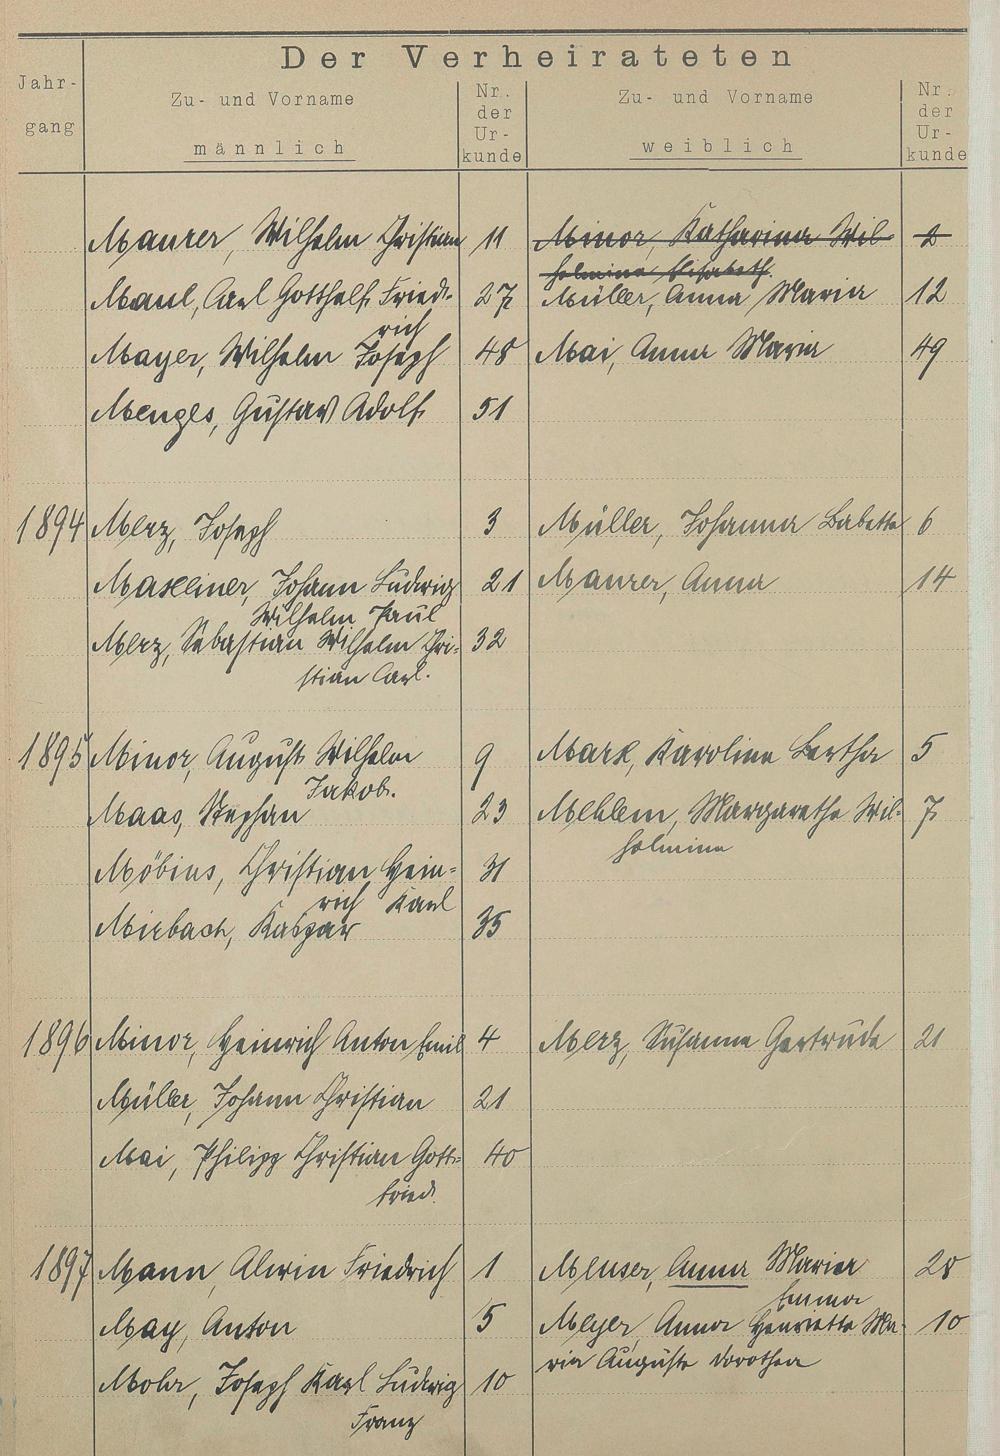 Der Verheirateten
Jahr-
gang
Zu- und Vorname
männlich
Nr.
der
Ur-
kunde
Zu- und Vorname
weiblich
Nr.
der
Ur-
kunde
Maurer, Wilhelm Christian 11 Minor, Katharina Wil- 2
helmine Elisabeth.
Maul, Carl Gotthelf Fried- 27 Müller, Anna Maria 12
rich
Mayer, Wilhelm Joseph 48 Mai, Anna Maria 49
Menges, Gustav Adolf 51
1894 Merz, Joseph 3 Müller, Johanna Babette 6
Maxeiner, Johann Ludwig 21 Maurer, Anna 14
Wilhelm Paul
Merz, Sebastian Wilhelm Chri- 32
stian Carl.
1895 Minor, August Wilhelm 9 Mark, Karoline Bertha 5
Jakob.
Maas, Stephan 23 Mehlem, Margarethe Wil- 7
helmine
Möbius, Christian Hein- 31
rich Karl
Mirbach, Kaspar 35
1896 Minor, Heinrich Anton Emil 4 Merz, Susanne Gertrude 21
Müller, Johann Christian 21
Mai, Philipp Christian Gott- 40
fried.
1897 Mann, Alwin Friedrich 1 Meuser, Anna Maria 28
Emma
May, Anton 5 Meyer, Anna Henriette Ma- 10
ria Auguste Dorothea
Mohr, Joseph Karl Ludwig 10
Franz